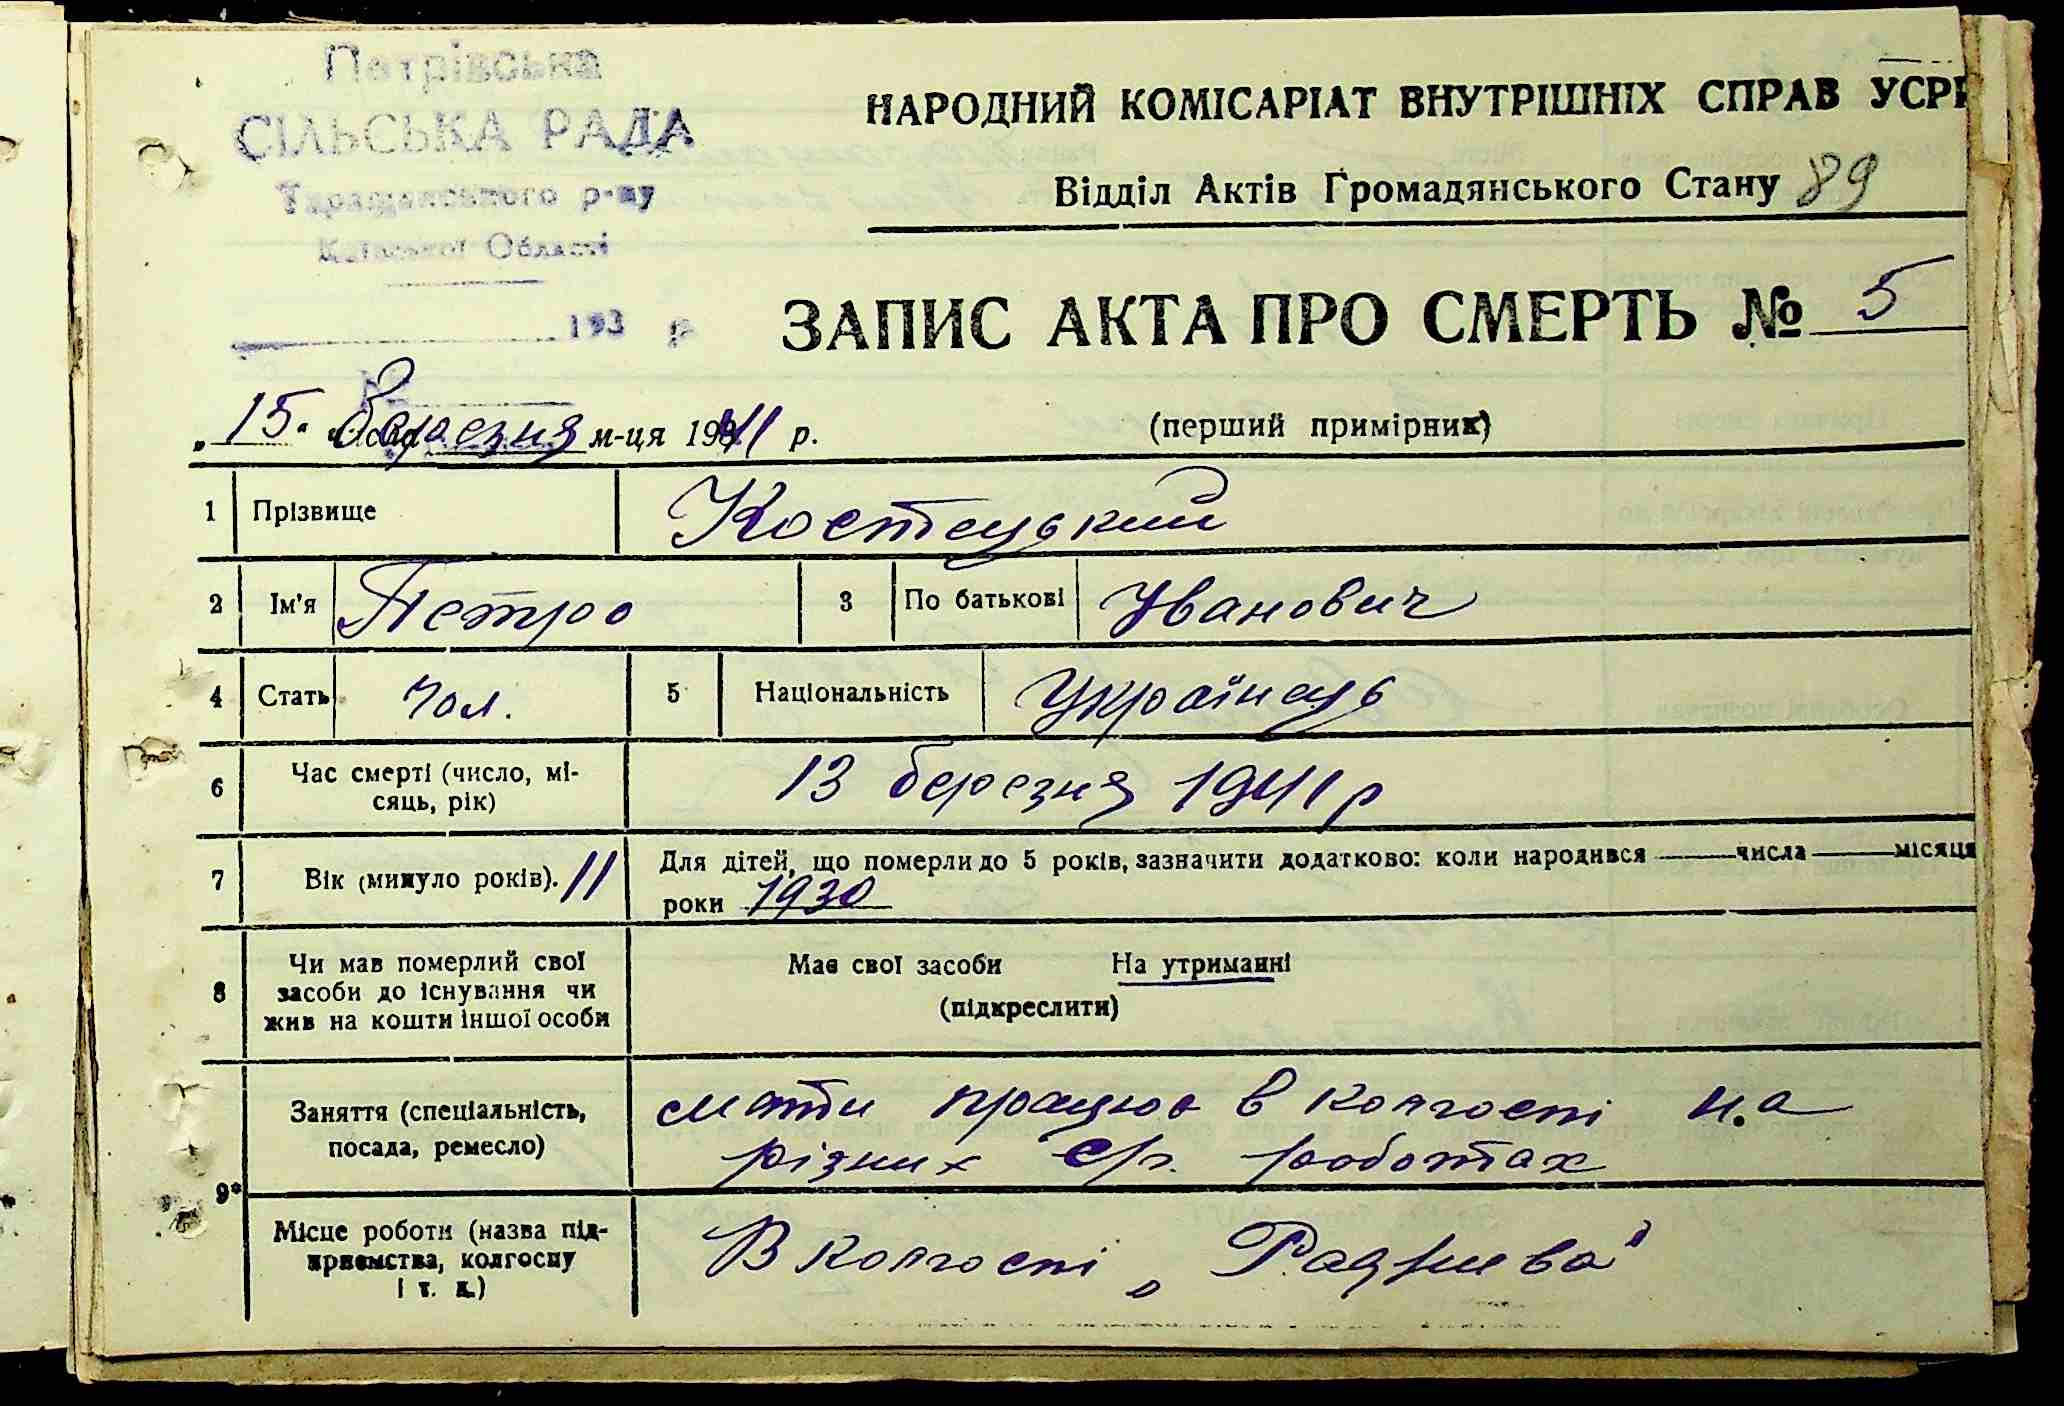 Петрівська
СІЛЬСЬКА РАДА
Таращанського р-ну
Київської Області
193 р.
№
НАРОДНИЙ КОМІСАРІАТ ВНУТРІШНІХ СПРАВ УСРР
Відділ Актів Громадянського Стану 89
ЗАПИС АКТА ПРО СМЕРТЬ № 5
„15“ березня м-ця 1941 р. (перший примірник)
1 Прізвище Костецький
2 Ім'я Петро 3 По батькові Іванович
4 Стать чол. 5 Національність Українець
6 Час смерті (число, мі-
сяць, рік) 13 березня 1941 р
7 Вік (минуло років). 11 Для дітей, що померли до 5 років, зазначити додатково: коли народився — числа — місяця
роки 1930
8 Чи мав померлий свої
засоби до існування чи
жив на кошти іншої особи
Має свої засоби На утриманні
(підкреслити)
9*
Заняття (спеціальність,
посада, ремесло)
мати працює в колгоспі на
різних с/г. роботах
Місце роботи (назва під-
приємства, колгоспу
і т. д.)
В колгоспі „